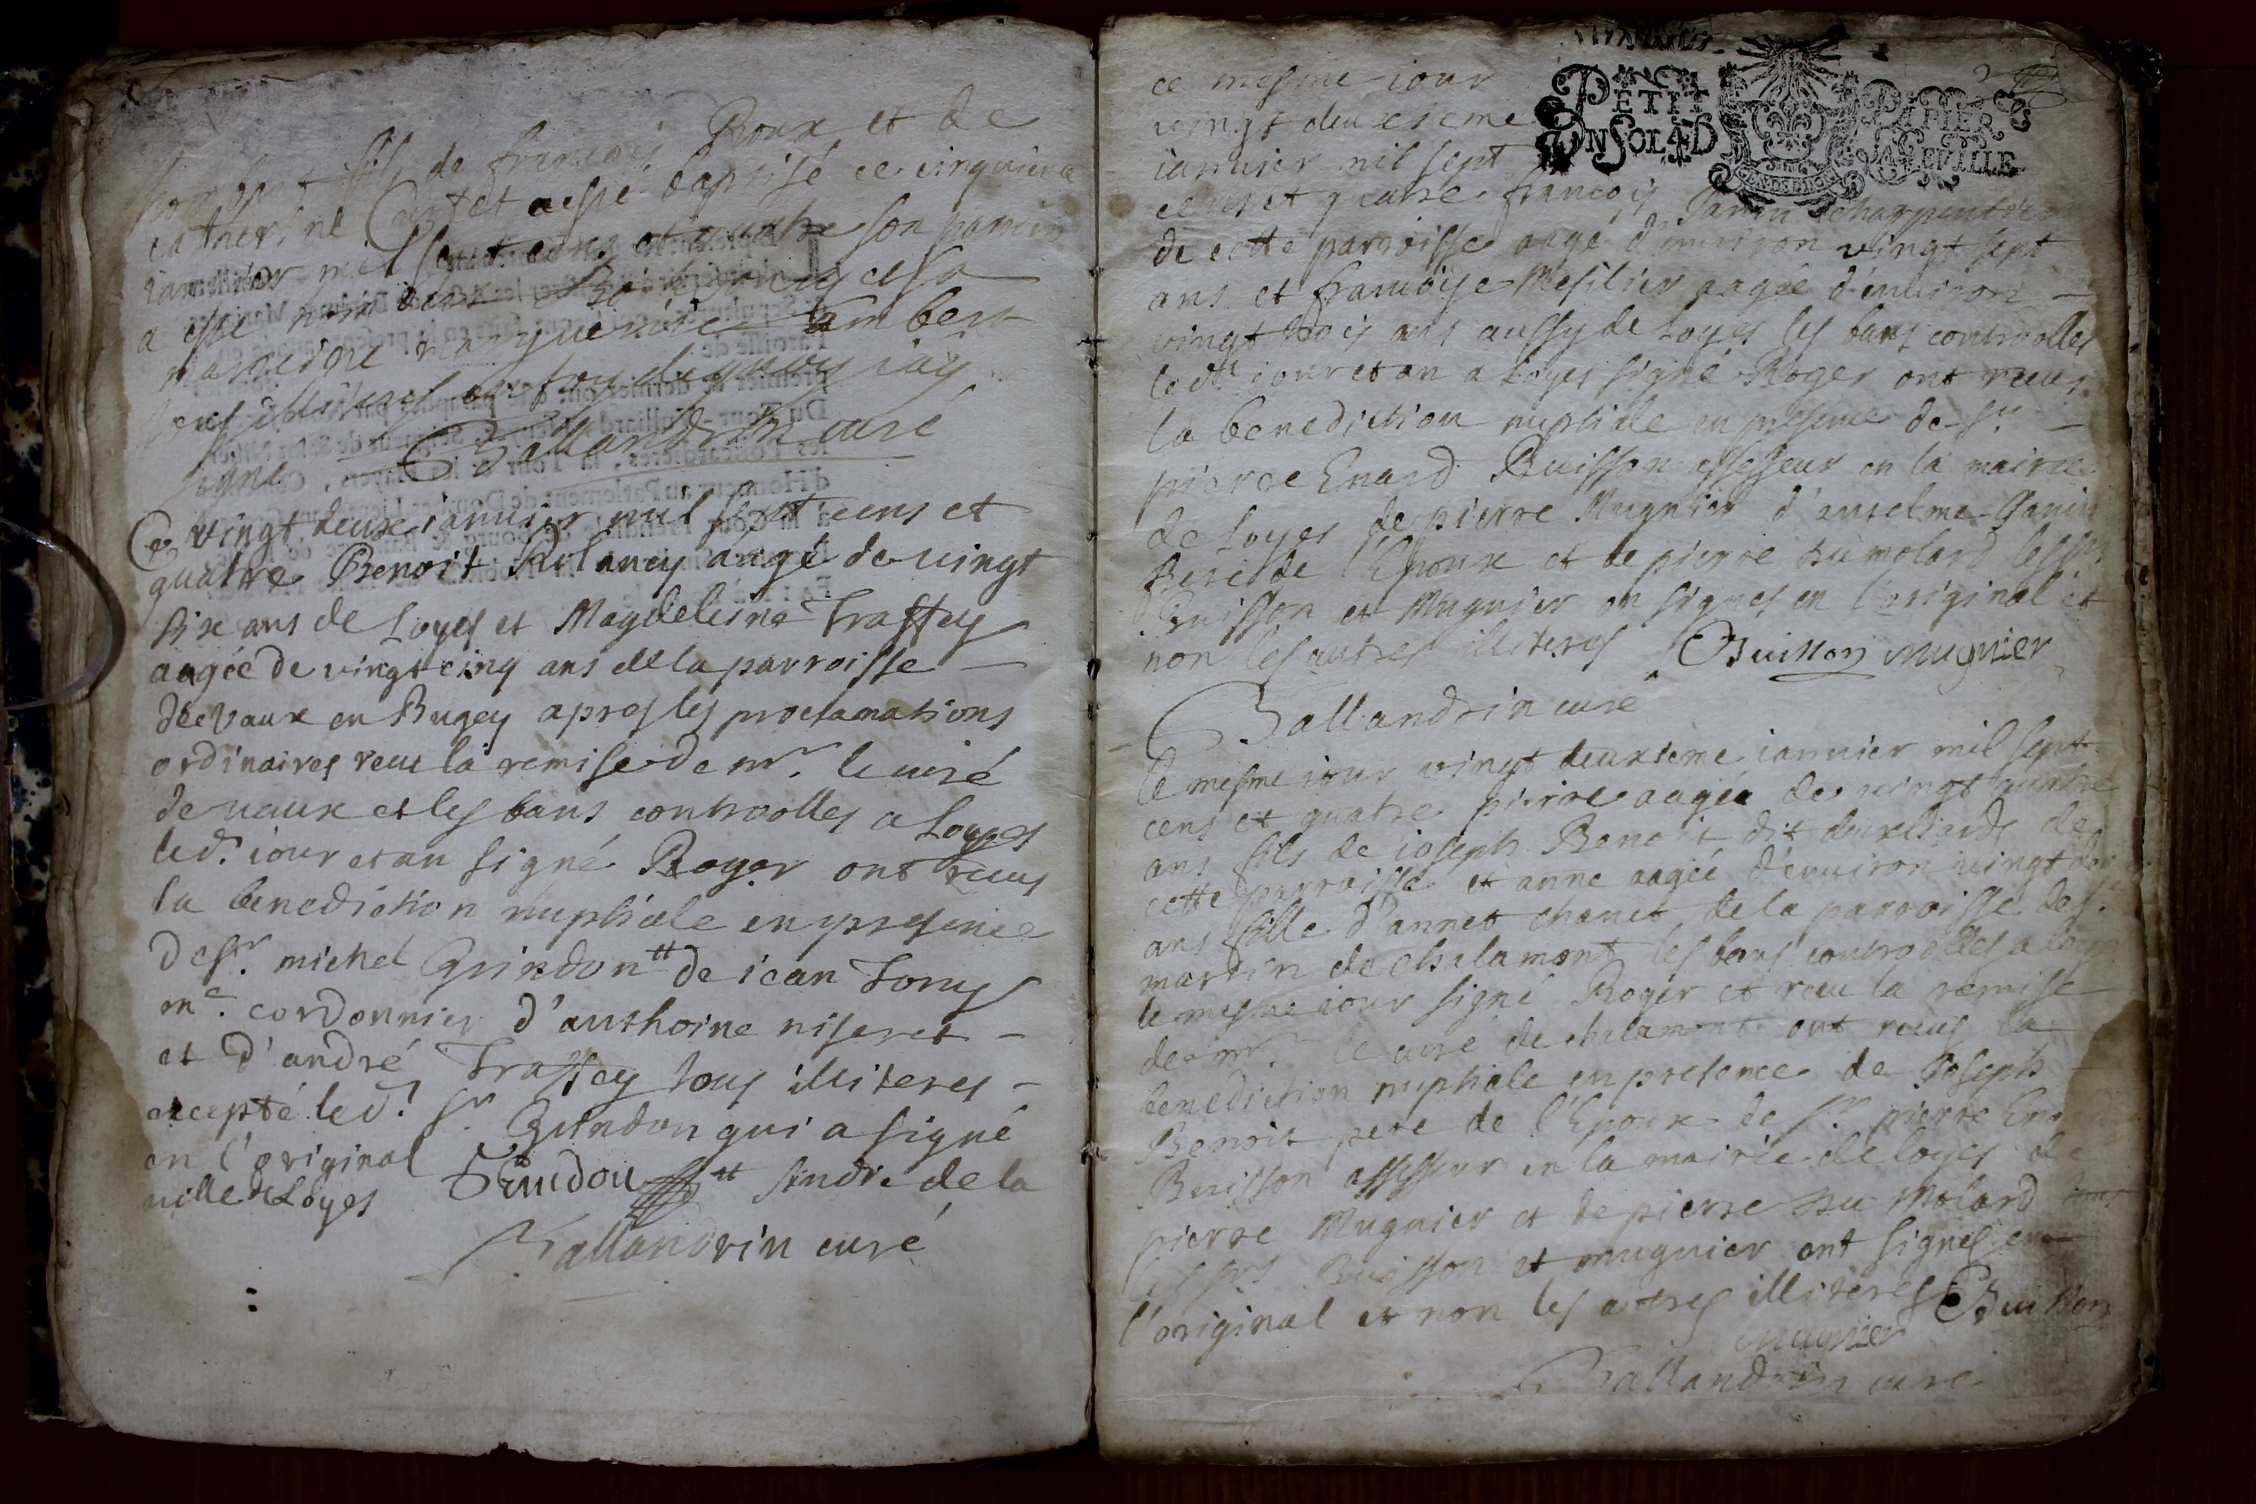 fils de francois Roux et de
catherine Curtet a esté baptisé ce cinquieme
ianuier mil sept cens et quatre son parrin
a esté
marreine marguerite Lambert
tous illiteres en foy de quoy iay
signé Ballandrin curé
Ce vingt deux ianuier mil sept cens et
quatre Benoit aagé de vingt
six ans de Loyes et Magdeleine Traffey
aagée de vingt cinq ans de la parroisse
de Vaux en Bugey apres les proclamations
ordinaires receu la remise de mr. le curé
de vaux et les bans controolles a Loyes
led. iour et an signé Roger ont receus
la benediction nuptiale en presence
de sr. michel Guindon de iean Tony
me. cordonnier d'anthoine niseret
et d'andré Traffey tous illiteres
excepté led. sr. Guindon qui a signé
en l'original Guindon Sindic de la
ville de Loyes
Ballandrin curé
PETIT PAPIER
UN SOL 4 D LA FEUILLE
GEN DE DIION
ce mesme iour
vingt deuxieme
ianuier mil sept
cens et quatre francois Janin charpentier
de cette parroisse aagé d'enuiron vingt sept
ans et francoise Mesilier aagée d'enuiron
vingt trois ans aussy de Loyes les bans controolles
led. iour et an a Loyes signé Roger ont receus
la benediction nuptiale en presence de sr.
pierre Enard Buisson assesseur en la mairie
de Loyes de pierre Mugnier d'anselme Janin
Pere de l'Epoux et de pierre du molard les srs.
Buisson et Mugnier on signés en l'original et
non les autres illiteres Buisson mugnier
Ballandrin curé
le mesme iour vingt deuxieme ianuier mil sept
cens et quatre pierre aagée de vingt quatre
ans fils de ioseph Benoit dit de
cette parroisse et anne aagée d'enuiron vingt
ans fille d'annet chanet de la parroisse de st.
martin de chalamont les bans controolles a loyes
le mesme iour signé Roger et receu la remise
de mr. le curé de chalamont ont receus la
benediction nuptiale en presence de Joseph
Benoit pere de l'Epoux de sr. pierre Enard
Buisson assesseur en la mairie de loyes de
pierre Mugnier et de pierre du Molard
les srs Buisson et mugnier ont signés en
l'original et non les autres illiteres Buisson
mugnier
Ballandrin curé